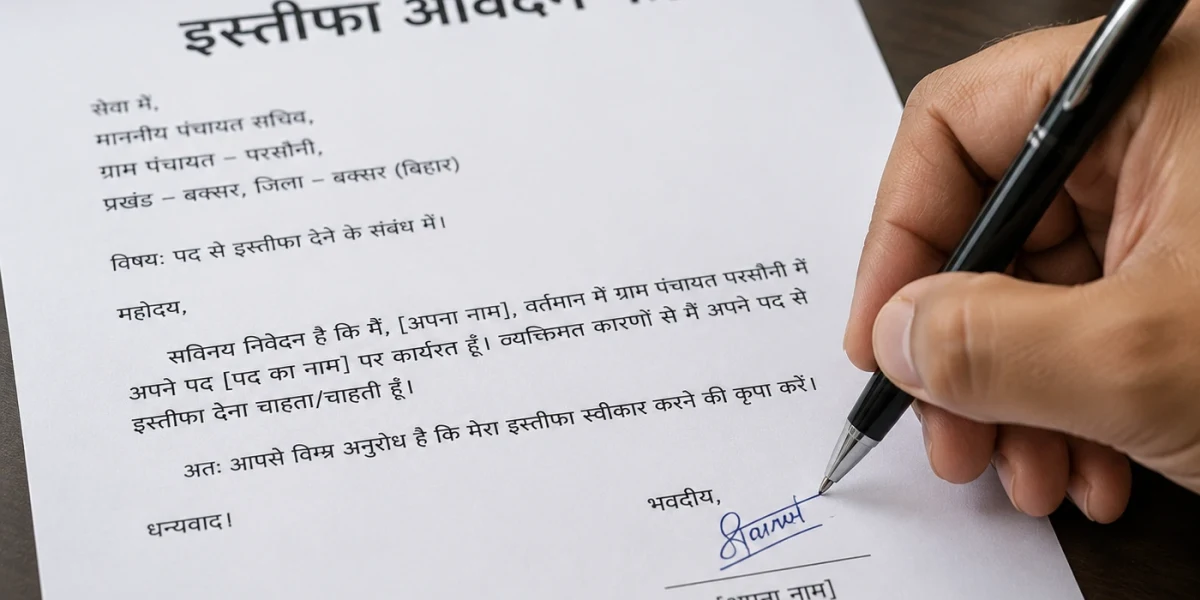 इस्तीफा आवेदन
सेवा में,
माननीय पंचायत सचिव,
ग्राम पंचायत – परसौनी,
प्रखंड – बक्सर, जिला – बक्सर (बिहार)
विषय: पद से इस्तीफा देने के संबंध में।
महोदय,
सविनय निवेदन है कि मैं, [अपना नाम], वर्तमान में ग्राम पंचायत परसौनी में
अपने पद [पद का नाम] पर कार्यरत हूँ। व्यक्तिमत कारणों से मैं अपने पद से
इस्तीफा देना चाहता/चाहती हूँ।
अतः आपसे विम्र अनुरोध है कि मेरा इस्तीफा स्वीकार करने की कृपा करें।
धन्यवाद!
भवदीय,
[अपना नाम]